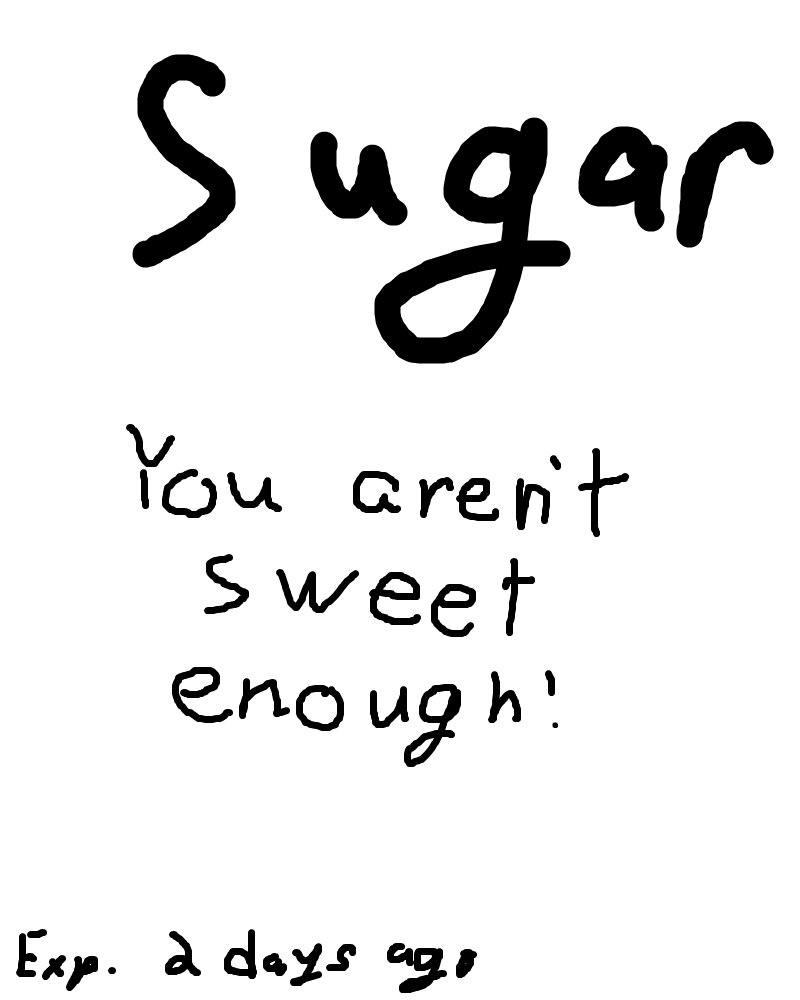 Sugar
You aren't
sweet
enough!
Exp. 2 days ago